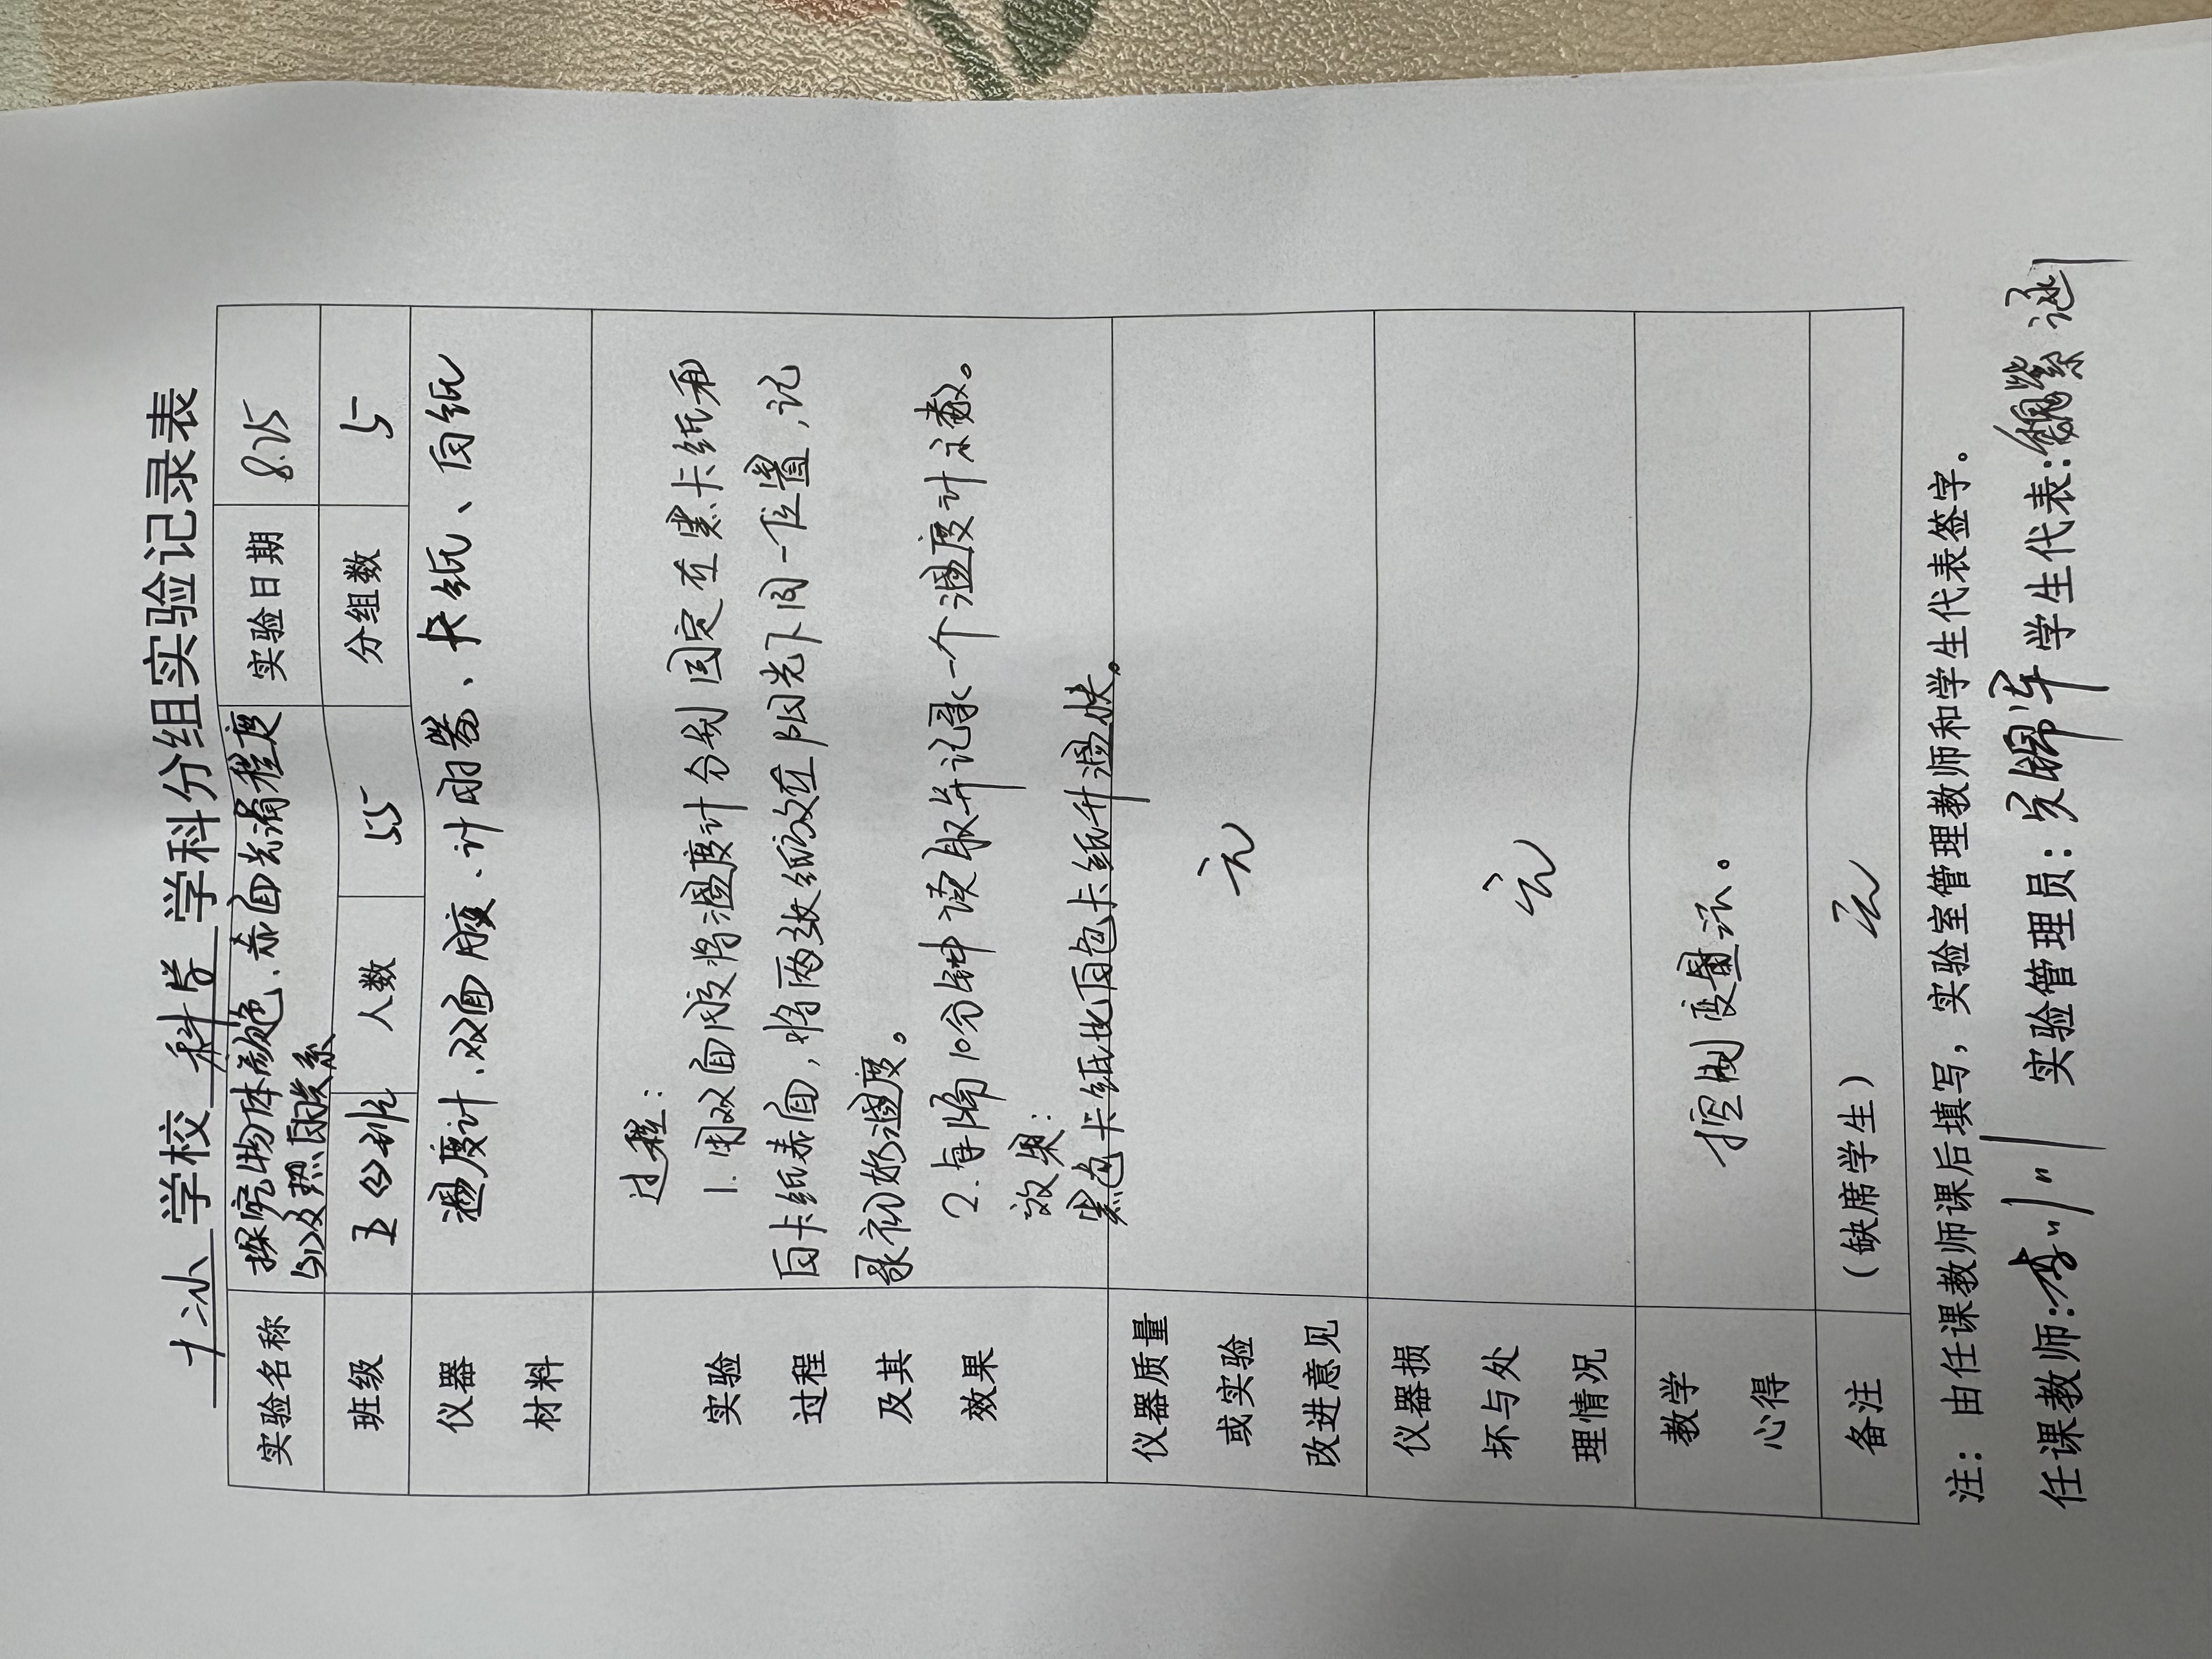 十二小学校 科学 学科分组实验记录表
实验名称 探究物体颜色、表面光滑程度 实验日期 8.25
与吸热的关系
班级 五(3)班 人数 55 分组数 5
仪器 温度计、双面胶、计时器、卡纸、白纸
材料
过程:
实验 1. 用双面胶将温度计分别固定在黑卡纸和
过程 白卡纸表面,将两张纸放在阳光下同一位置,记
及其 录初始温度。
效果 2. 每隔10分钟读取并记录一个温度计读数。
效果:
黑色卡纸比白色卡纸升温快。
仪器质量
或实验 无
改进意见
仪器损
坏与处 无
理情况
教学 控制变量法。
心得
备注 (缺席学生) 无
注:由任课教师课后填写,实验室管理教师和学生代表签字。
任课教师:李 实验管理员: 学生代表:魏紫涵